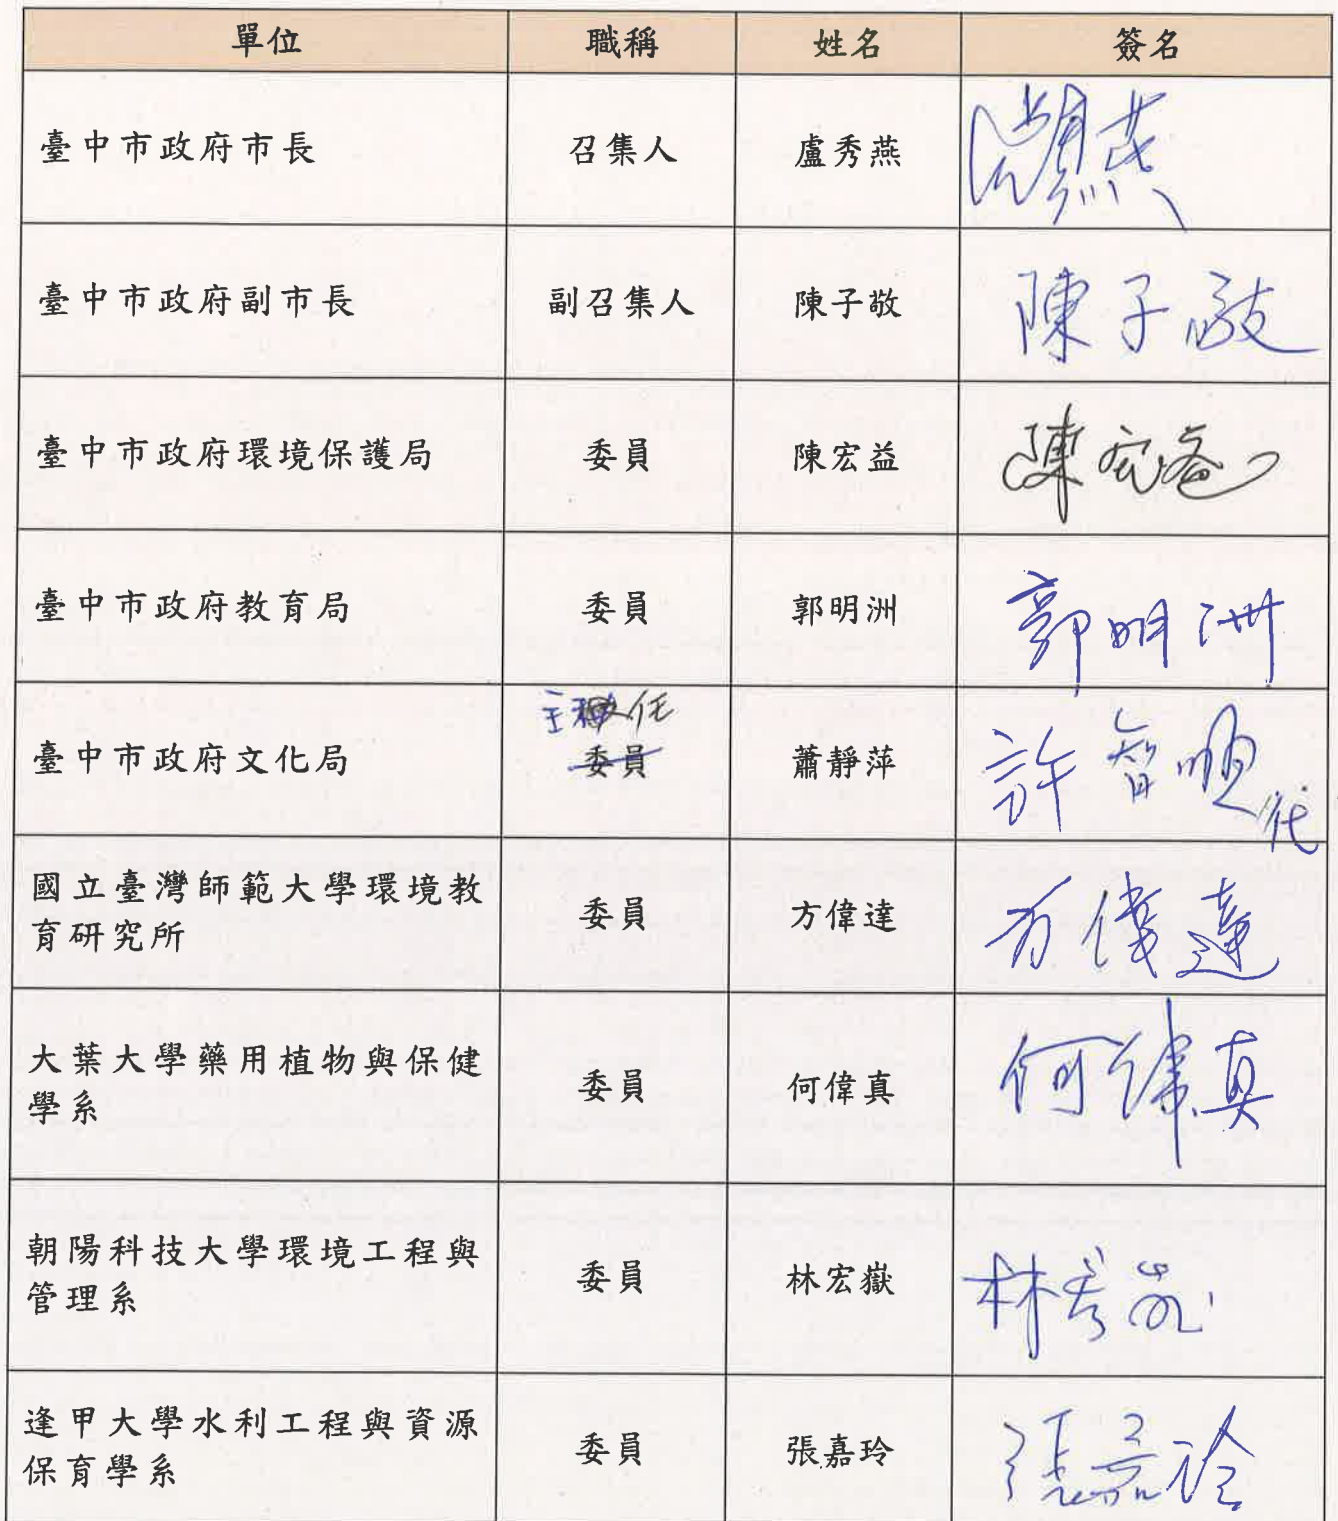 單位 職稱 姓名 簽名
臺中市政府市長 召集人 盧秀燕
臺中市政府副市長 副召集人 陳子敬 陳子敬
臺中市政府環境保護局 委員 陳宏益 陳宏益
臺中市政府教育局 委員 郭明洲 郭明洲
主任
臺中市政府文化局 委員 蕭靜萍 許智順代
國立臺灣師範大學環境教 委員 方偉達 方偉達
育研究所
大葉大學藥用植物與保健 委員 何偉真 何偉真
學系
朝陽科技大學環境工程與 委員 林宏嶽 林宏嶽
管理系
逢甲大學水利工程與資源 委員 張嘉玲 張嘉玲
保育學系